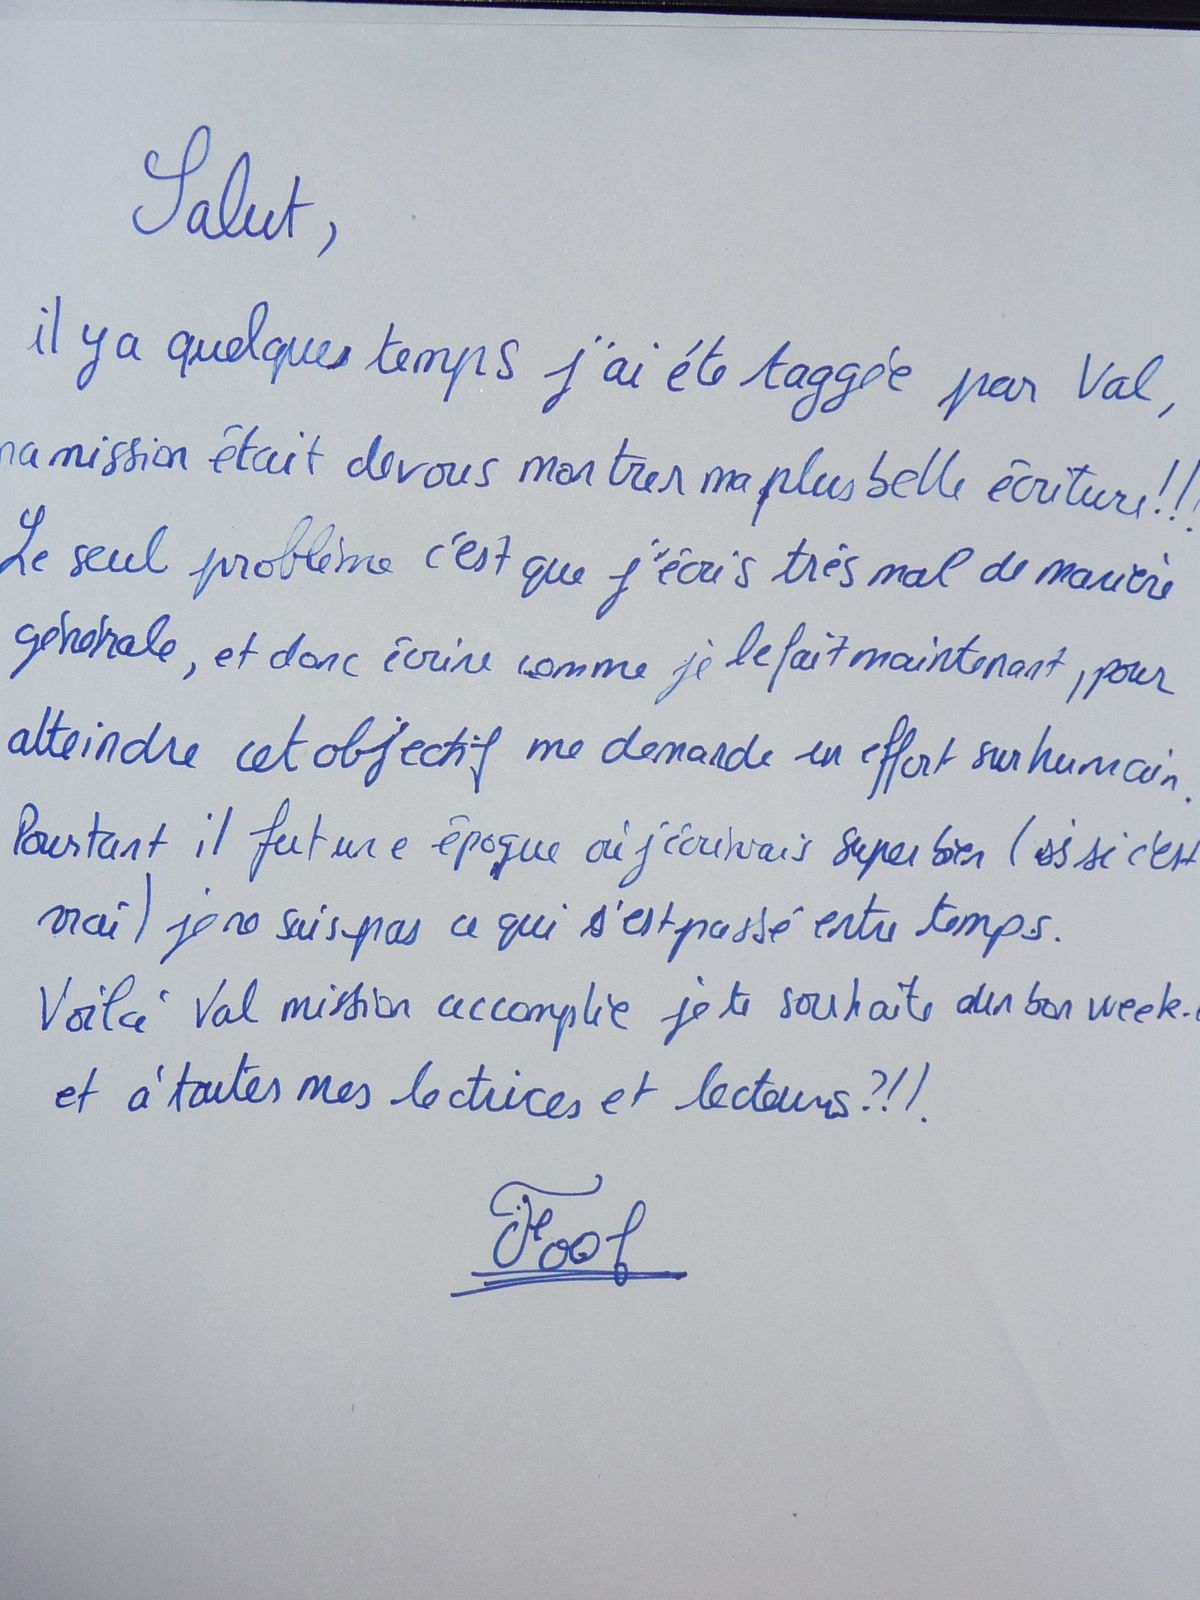 Salut,
il y a quelques temps j'ai été taggée par Val,
ma mission était de vous montrer ma plus belle écriture!!!
Le seul problème c'est que j'écris très mal de manière
générale, et donc écrire comme je le fait maintenant, pour
atteindre cet objectif me demande un effort surhumain.
Pourtant il fut une époque où j'écrivais super bien (si si c'est
vrai) je ne sais pas ce qui s'est passé entre temps.
Voilà Val mission accomplie je te souhaite un bon week-
et à toutes mes lectrices et lecteurs?!!